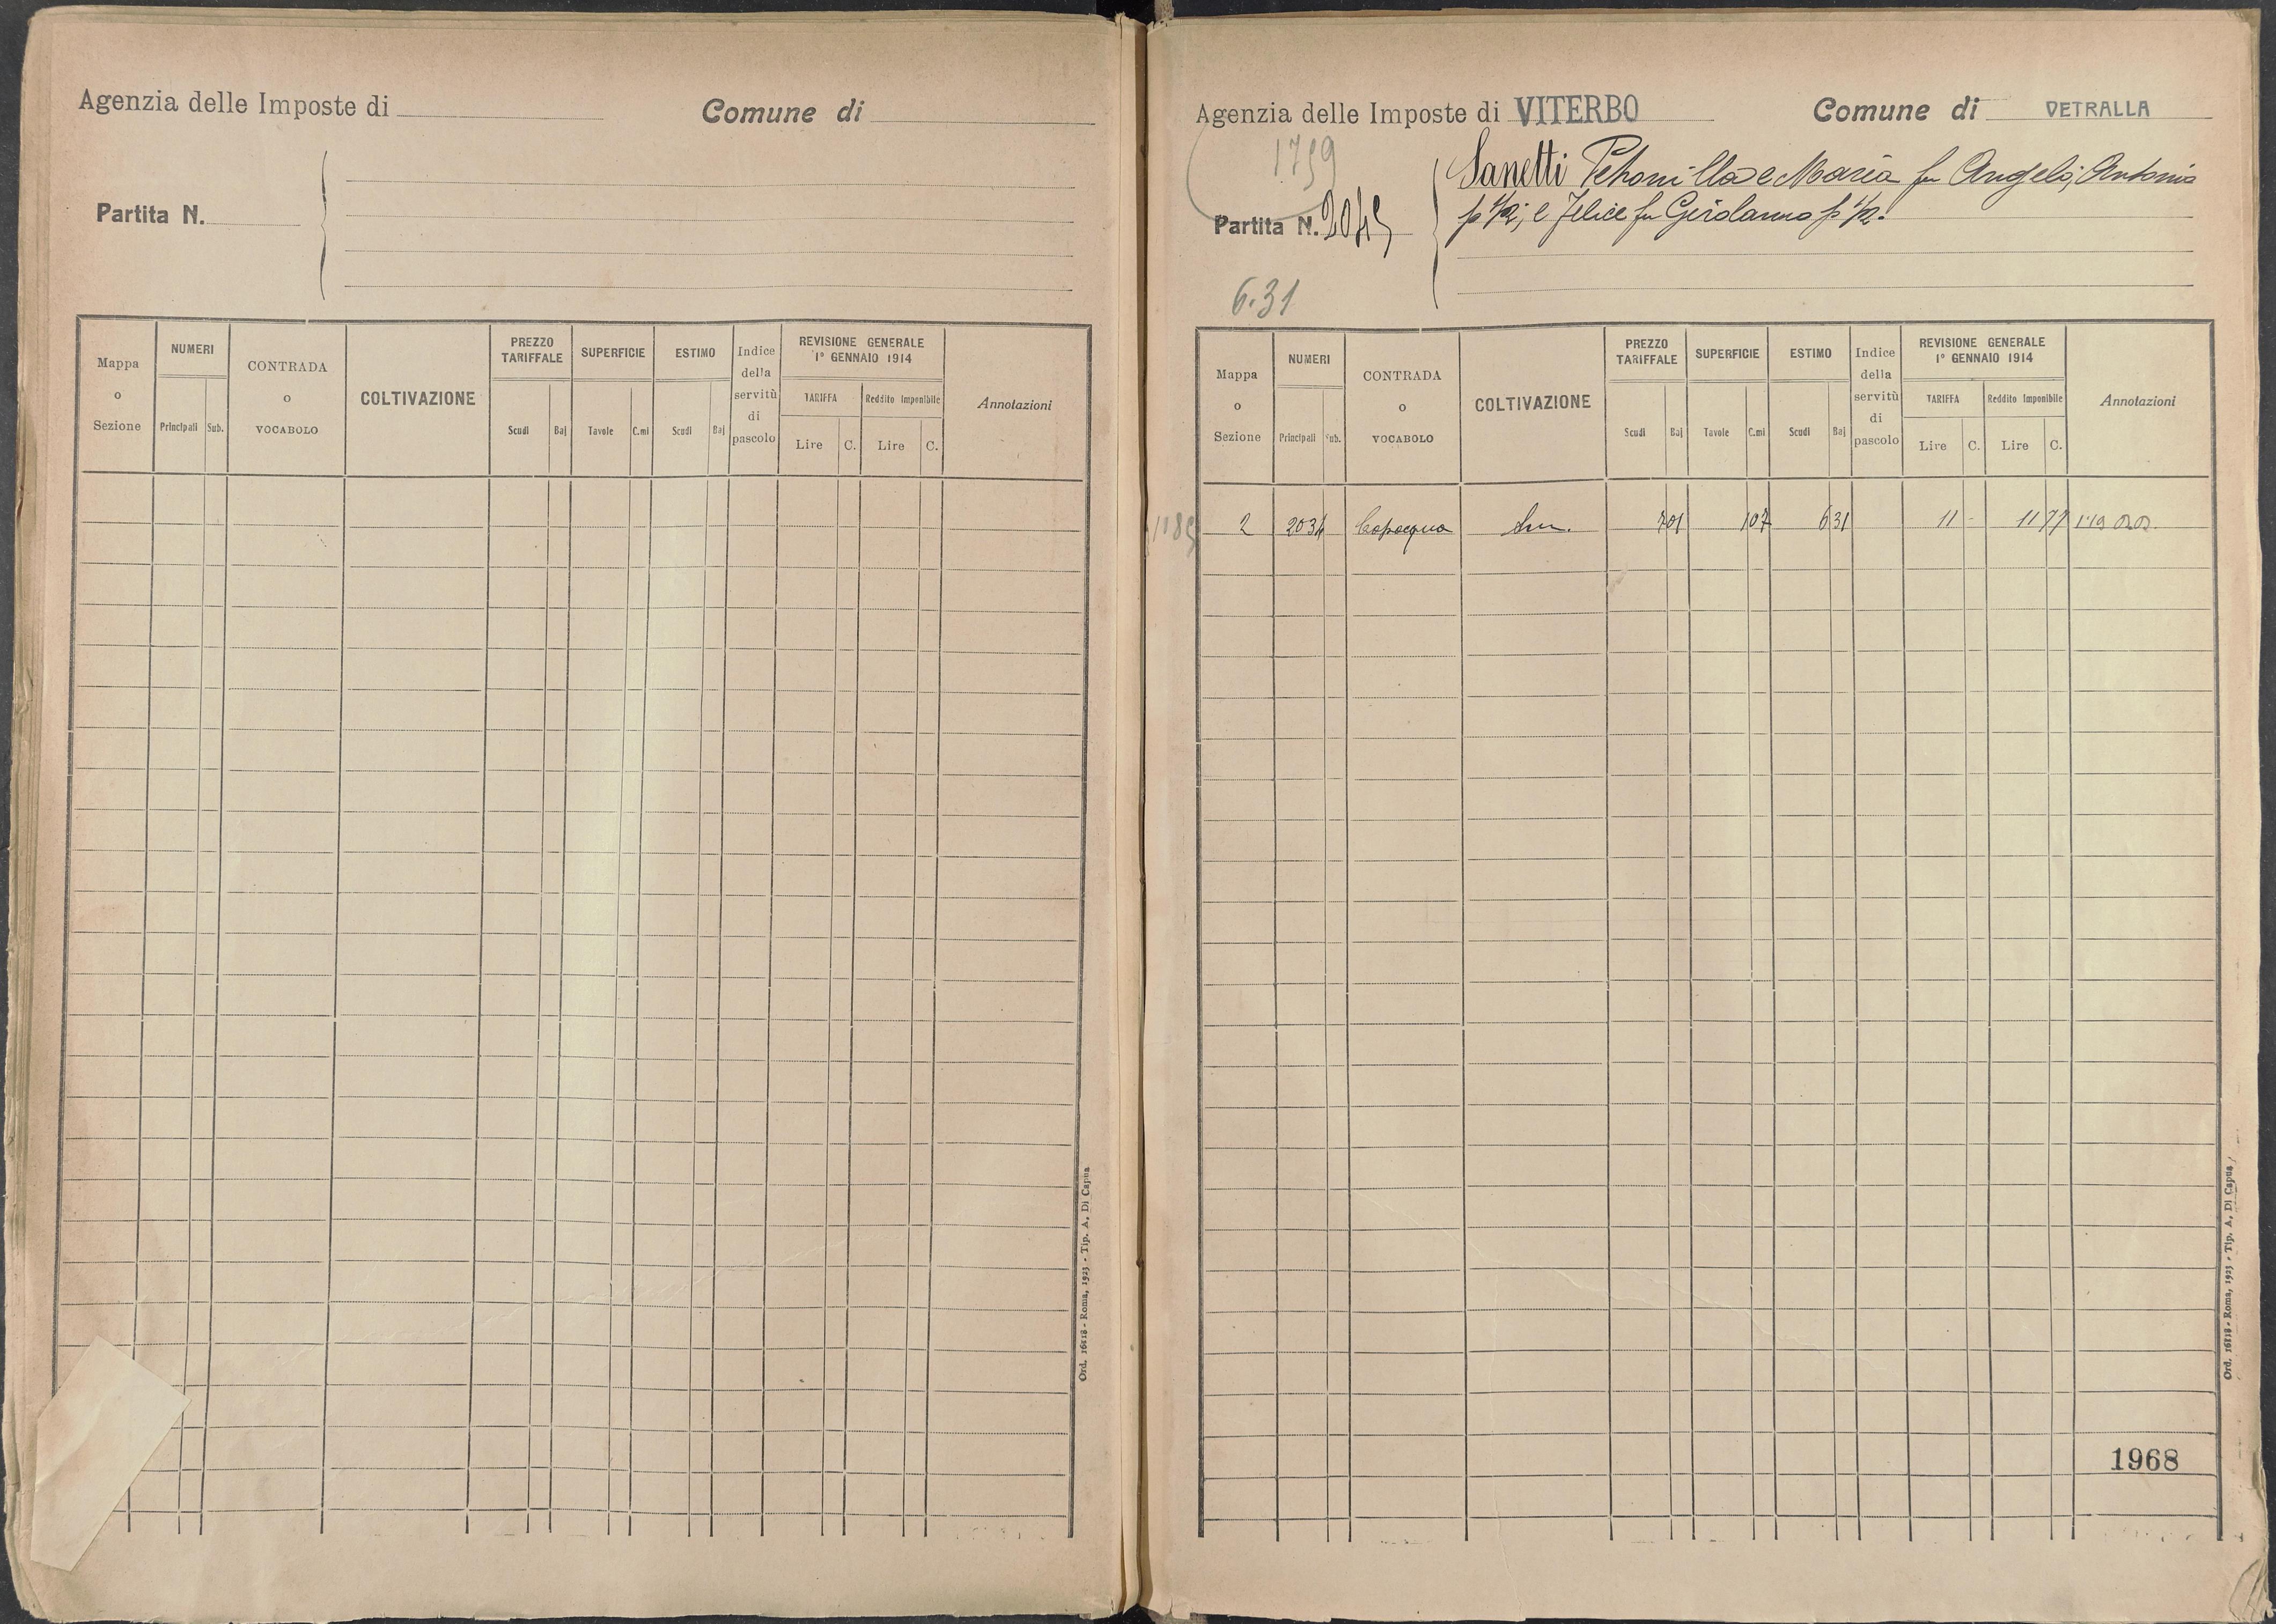 Agenzia delle Imposte di
Comune di
Partita N.
Mappa o Sezione
NUMERI
Principali Sub.
CONTRADA o VOCABOLO
COLTIVAZIONE
PREZZO TARIFFALE
Scudi Baj
SUPERFICIE
Tavole C.mi
ESTIMO
Scudi Baj
Indice della servitù di pascolo
REVISIONE GENERALE
1º GENNAIO 1914
TARIFFA
Lire C.
Reddito Imponibile
Lire C.
Annotazioni
Ord. 16818 - Roma, 1923 - Tip. A. Di Capua
Agenzia delle Imposte di VITERBO
Comune di VETRALLA
1759
Partita N. 2045
Sanetti Petronilla e Maria fu Angelo; Antonio
p 1/2; e Felice fu Girolamo p 1/2.
6.31
Mappa o Sezione
NUMERI
Principali Sub.
CONTRADA o VOCABOLO
COLTIVAZIONE
PREZZO TARIFFALE
Scudi Baj
SUPERFICIE
Tavole C.mi
ESTIMO
Scudi Baj
Indice della servitù di pascolo
REVISIONE GENERALE
1º GENNAIO 1914
TARIFFA
Lire C.
Reddito Imponibile
Lire C.
Annotazioni
2 2034 Capacqua 1 07 6 31 11 - 11 77
1968
Ord. 16818 - Roma, 1923 - Tip. A. Di Capua